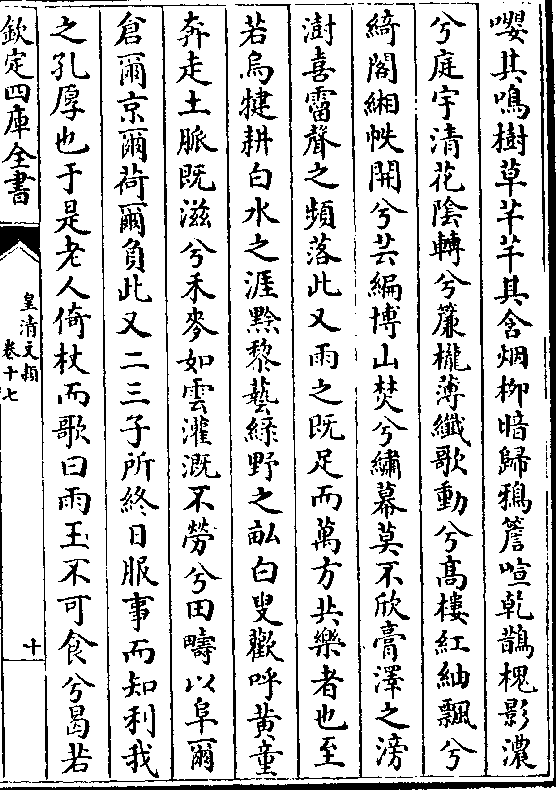 嚶其鳴樹草芊芊其含烟柳暗歸鴉簷喧乾鵲槐影濃
兮庭宇清花陰轉兮簾櫳薄纖歌動兮髙樓紅紬飄兮
綺閣緗帙開兮芸編博山焚兮繡幕莫不欣膏澤之滂
澍喜霤聲之頻落此又雨之既足而萬方共樂者也至
若烏犍耕白水之涯黔黎藝綠野之畝白叟歡呼黄童
奔走土脈既滋兮禾麥如雲灌溉不勞兮田疇以阜爾
倉爾京爾荷爾負此又二三子所終日服事而知利我
之孔厚也于是老人倚杖而歌曰雨玉不可食兮曷若
欽定四庫全書
皇清文頴
卷十七
十